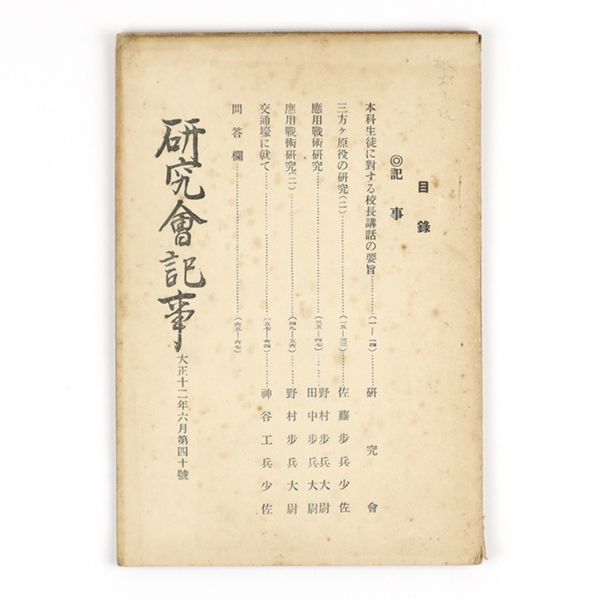 目錄
◎記事
本科生徒に對する校長講話の要旨…………(一—一四)………研究會
三方ケ原役の研究(二)…………(一五—三三)………佐藤步兵少佐
應用戰術研究…………(三五—四七)………野村步兵大尉 田中步兵大尉
應用戰術研究(二)…………(四九—五六)………野村步兵大尉
交通壕に就て…………(五七—六四)………神谷工兵少佐
問答欄…………(六五—六七)
研究會記事
大正十二年六月第四十號